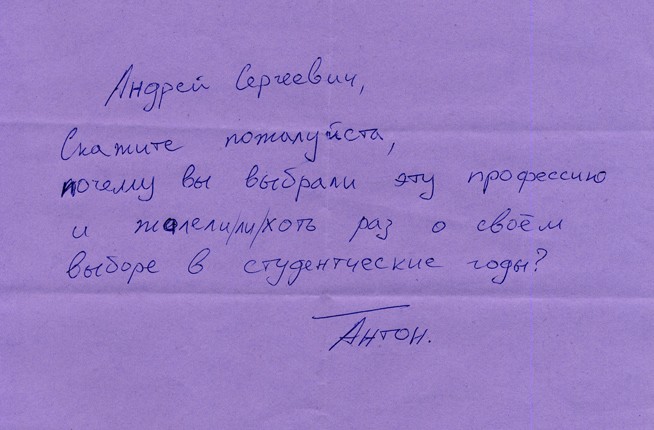 Андрей Сергеевич,
Скажите пожалуйста,
почему вы выбрали эту профессию
и жалели/ли/хоть раз о своём
выборе в студентческие годы?
Антон.